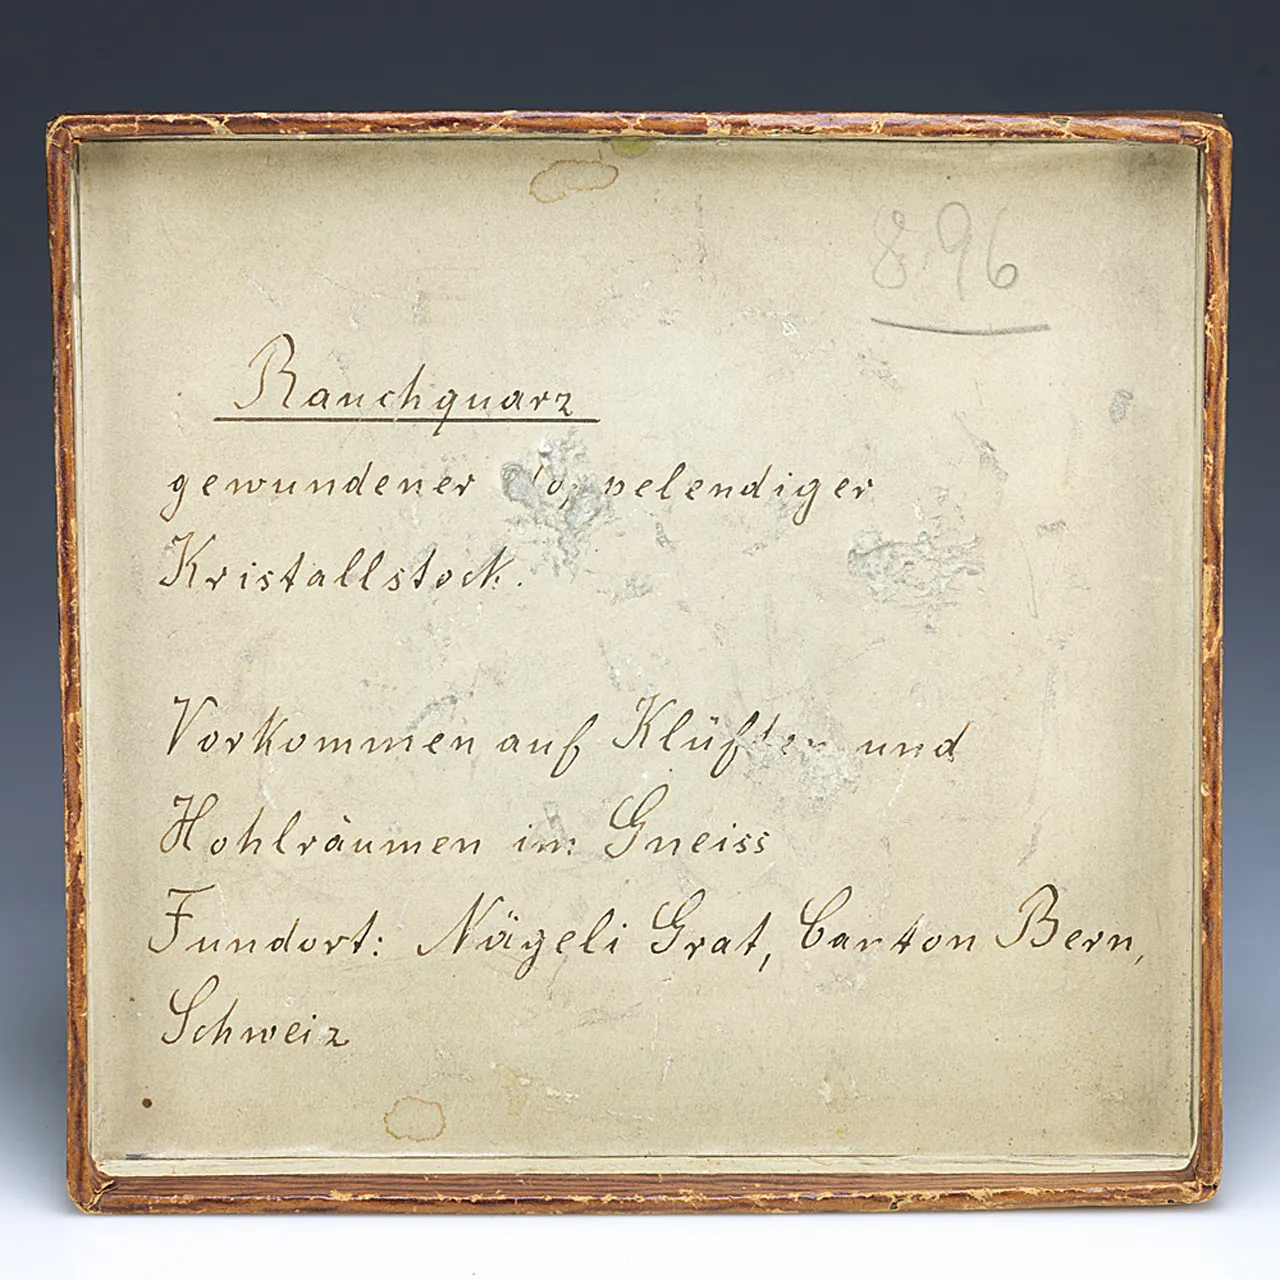 896
Rauchquarz
gewundener doppelendiger
Kristallstock.
Vorkommen auf Klüften und
Hohlräumen im Gneiss
Fundort: Nägeli Grat, Canton Bern,
Schweiz